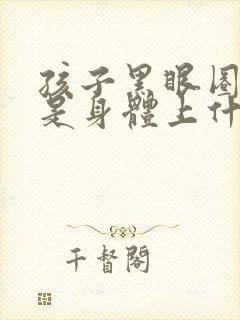 孩子黑眼圈
是身體上什
千督閣